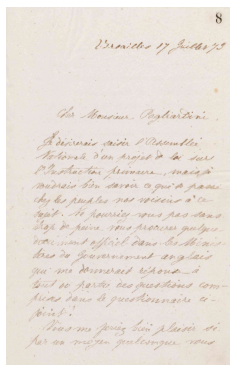 8
Versailles 17 Juillet 73
Cher Monsieur Pagliardini.
Je désirerais saisir l'Assemblée
Nationale d'un projet de loi sur
l'Instruction primaire, mais je
voudrais bien savoir ce qui se passe
chez les peuples nos voisins à ce
sujet. Ne pourriez vous pas sans
trop de peine, nous procurer quelque
document officiel dans les Minis
tères du Gouvernement anglais
qui me donnerait réponse à
tout ou partie des questions com-
prises dans le questionnaire ci-
joint?
Vous me feriez bien plaisir si
par un moyen quelconque vous